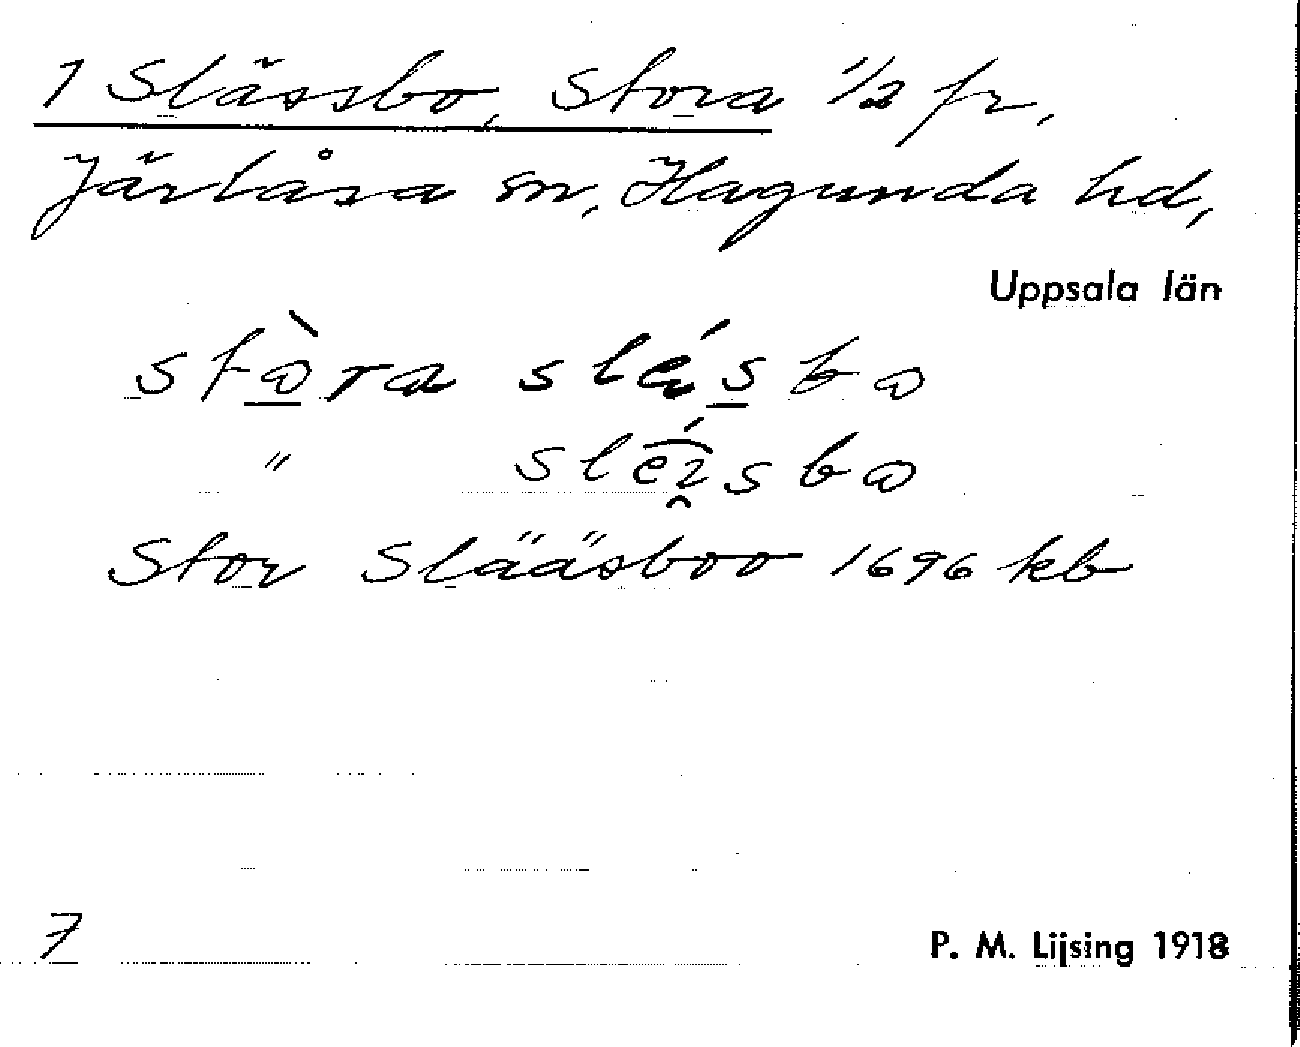 1 Slässbo, Stora 1/2 fr,
Järlåsa sn, Hagunda hd,
Uppsala län
stòra slésbo
" slézsbo
Stor Slääsboo 1696 kb
7
P. M. Lijsing 1918